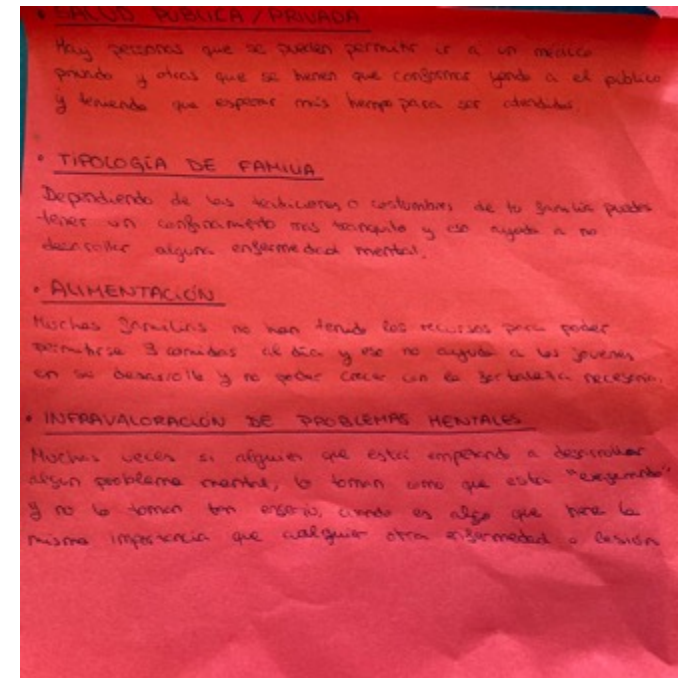 • SALUD PUBLICA / PRIVADA
Hay personas que se pueden permitir ir a un médico
privado y otras que se tienen que conformar yendo a el publico
y teniendo que esperar más tiempo para ser atendidos.
• TIPOLOGÍA DE FAMILIA
Dependiendo de las tradiciones o costumbres de tu familia puedes
tener un confinamiento mas tranquilo y eso ayuda a no
desarrollar alguna enfermedad mental.
• ALIMENTACIÓN
Muchas familias no han tenido los recursos para poder
permitirse 3 comidas al día y eso no ayuda a los jovenes
en su desarrollo y no poder crecer con la fortaleza necesaria.
• INFRAVALORACIÓN DE PROBLEMAS MENTALES
Muchas veces si alguien que está empezando a desarrollar
algun problema mental, lo toman como que está "exagerando"
y no lo toman tan enserio, cuando es algo que tiene la
misma importancia que cualquier otra enfermedad o lesión